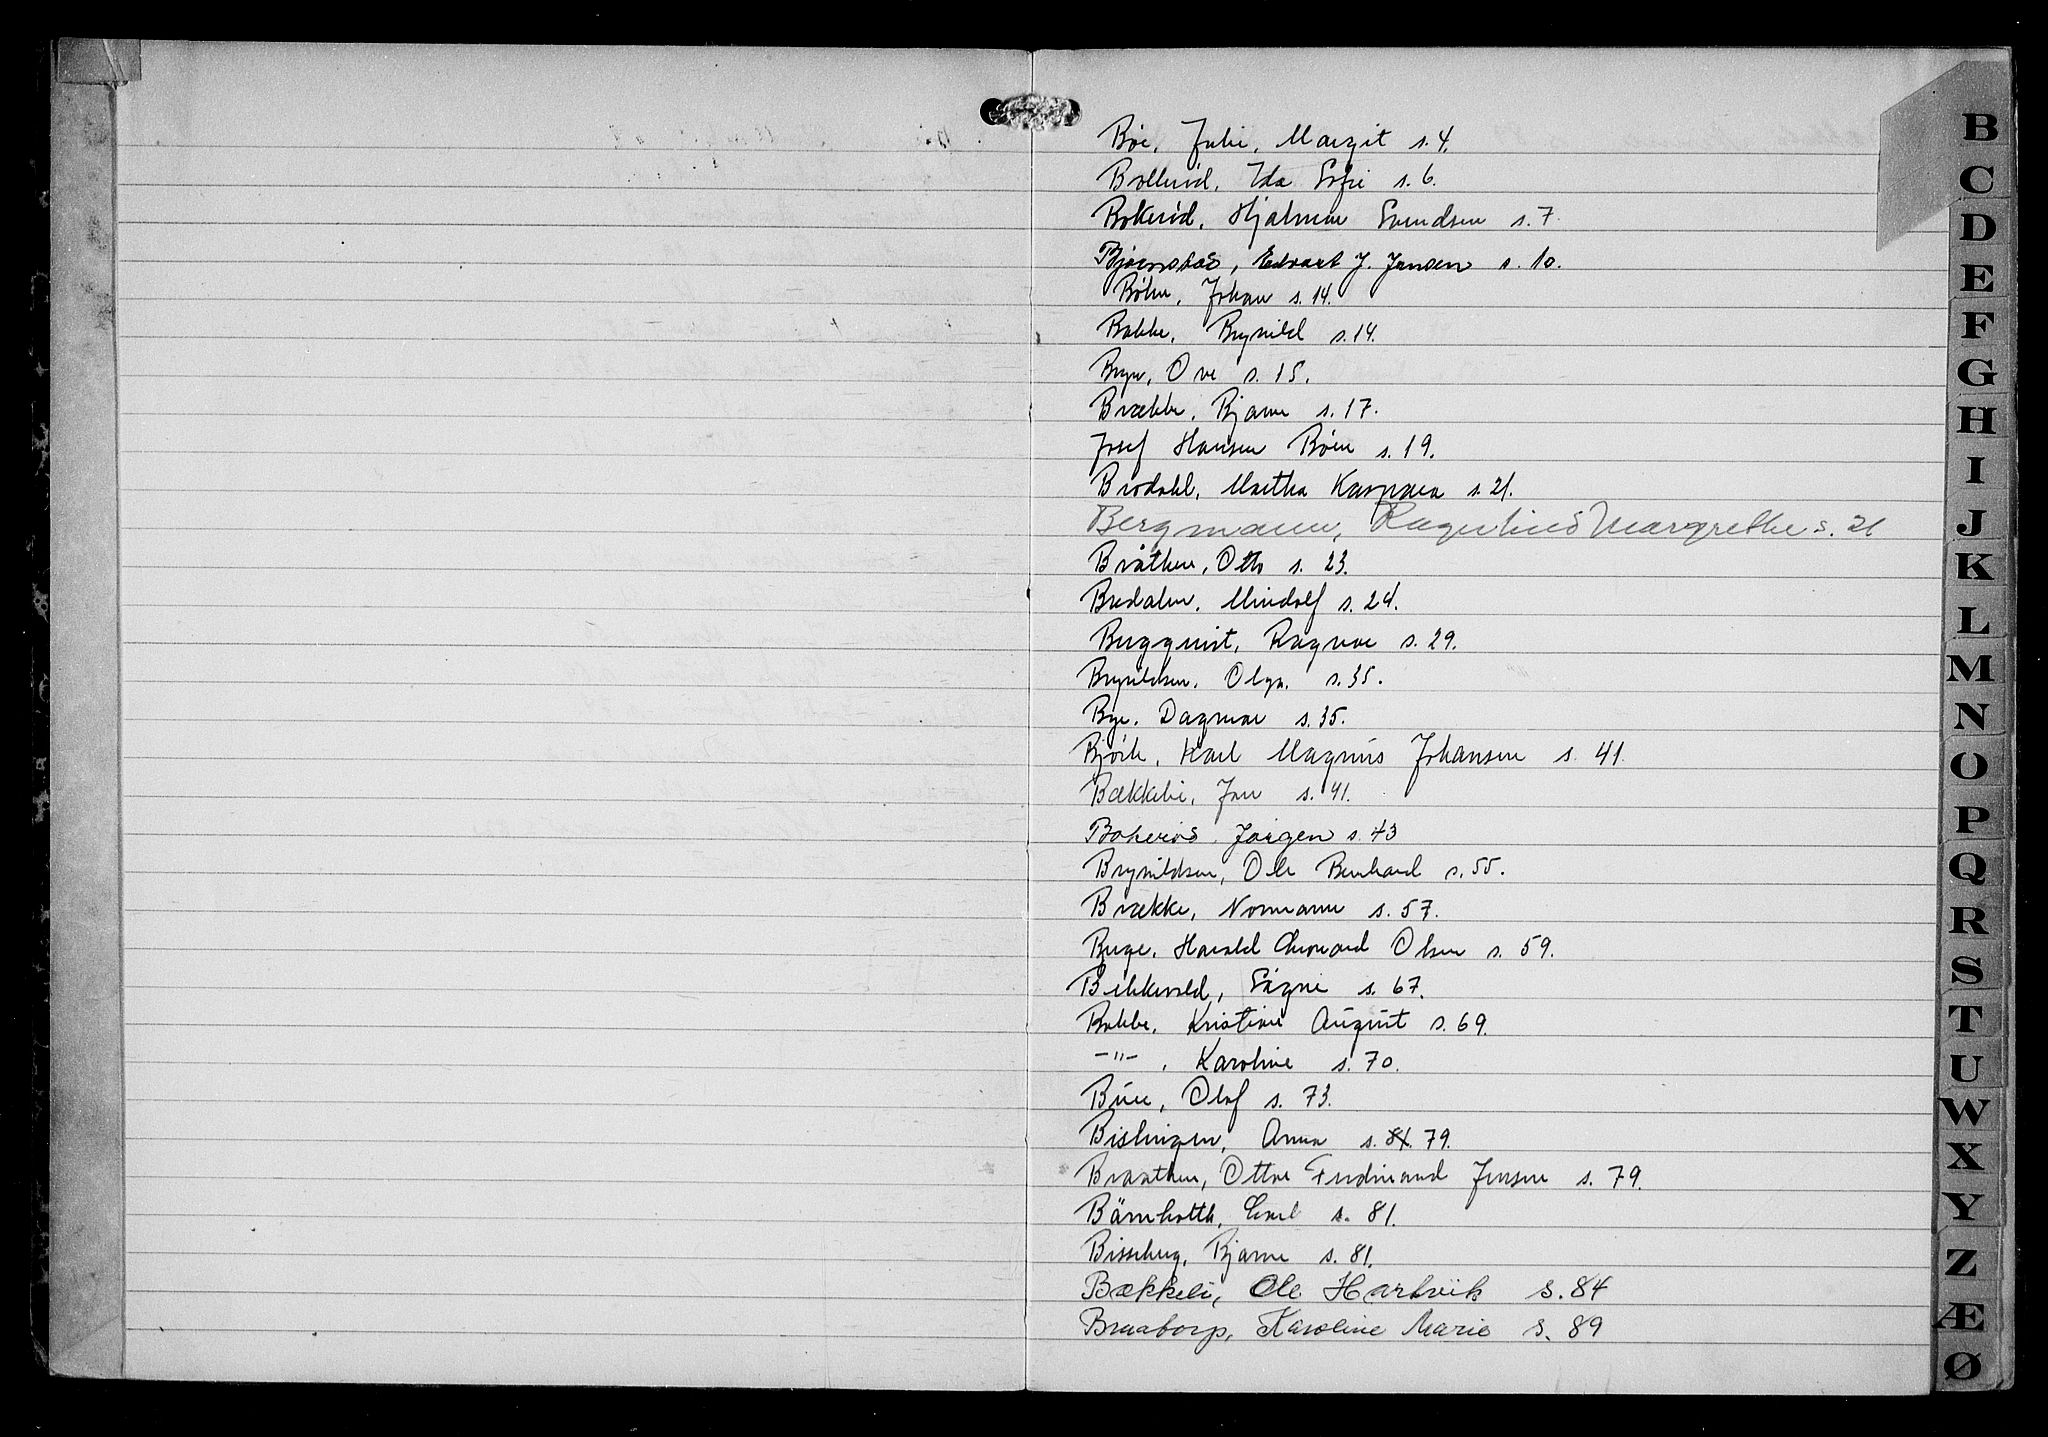 Bøe, Julie, Margit s. 4.
Bollerød, Ida Sofie s. 6.
Bokerød, Hjalmar Svendsen s. 7.
Bjørnstad, Edvart J. Jensen s. 10.
Bøhn, Johan s. 14.
Bakke, Brynild s. 14.
Bryn, Ove s. 15.
Brække, Bjarne s. 17.
Josef Hansen Bøen s. 19.
Brodahl, Martha Kaspara s. 21.
Bergmann, Ragnhild Margrethe s. 21
Bråthen, Otto s. 23.
Bredalen, Mindolf s. 24.
Bergquist, Ragnar s. 29.
Brynildsen, Olga. s. 35.
Bye, Dagmar s. 35.
Bjørk, Karl Magnus Johansen s. 41.
Bækkeli, Jon s. 41.
Bokerød, Jørgen s. 43
Brynildsen, Ole Bernhard s. 55.
Brække, Normann s. 57.
Berge, Harald Olsen s. 59.
Bekkevold, Signe s. 67.
Bakke, Kristian August s. 69.
-"- , Karoline s. 70.
Buer, Olaf s. 73.
Bislingen, Anna s. 81. 79.
Braathen, Ottar Ferdinand Jensen s. 79.
Bärnholth, Carl s. 81.
Bisseberg, Bjarne s. 81.
Bækkeli, Ole Hartvik s. 84
Karoline Marie s. 89
B
C
D
E
F
G
H
I
J
K
L
M
N
O
P
Q
R
S
T
U
W
X
Y
Z
Æ
Ø